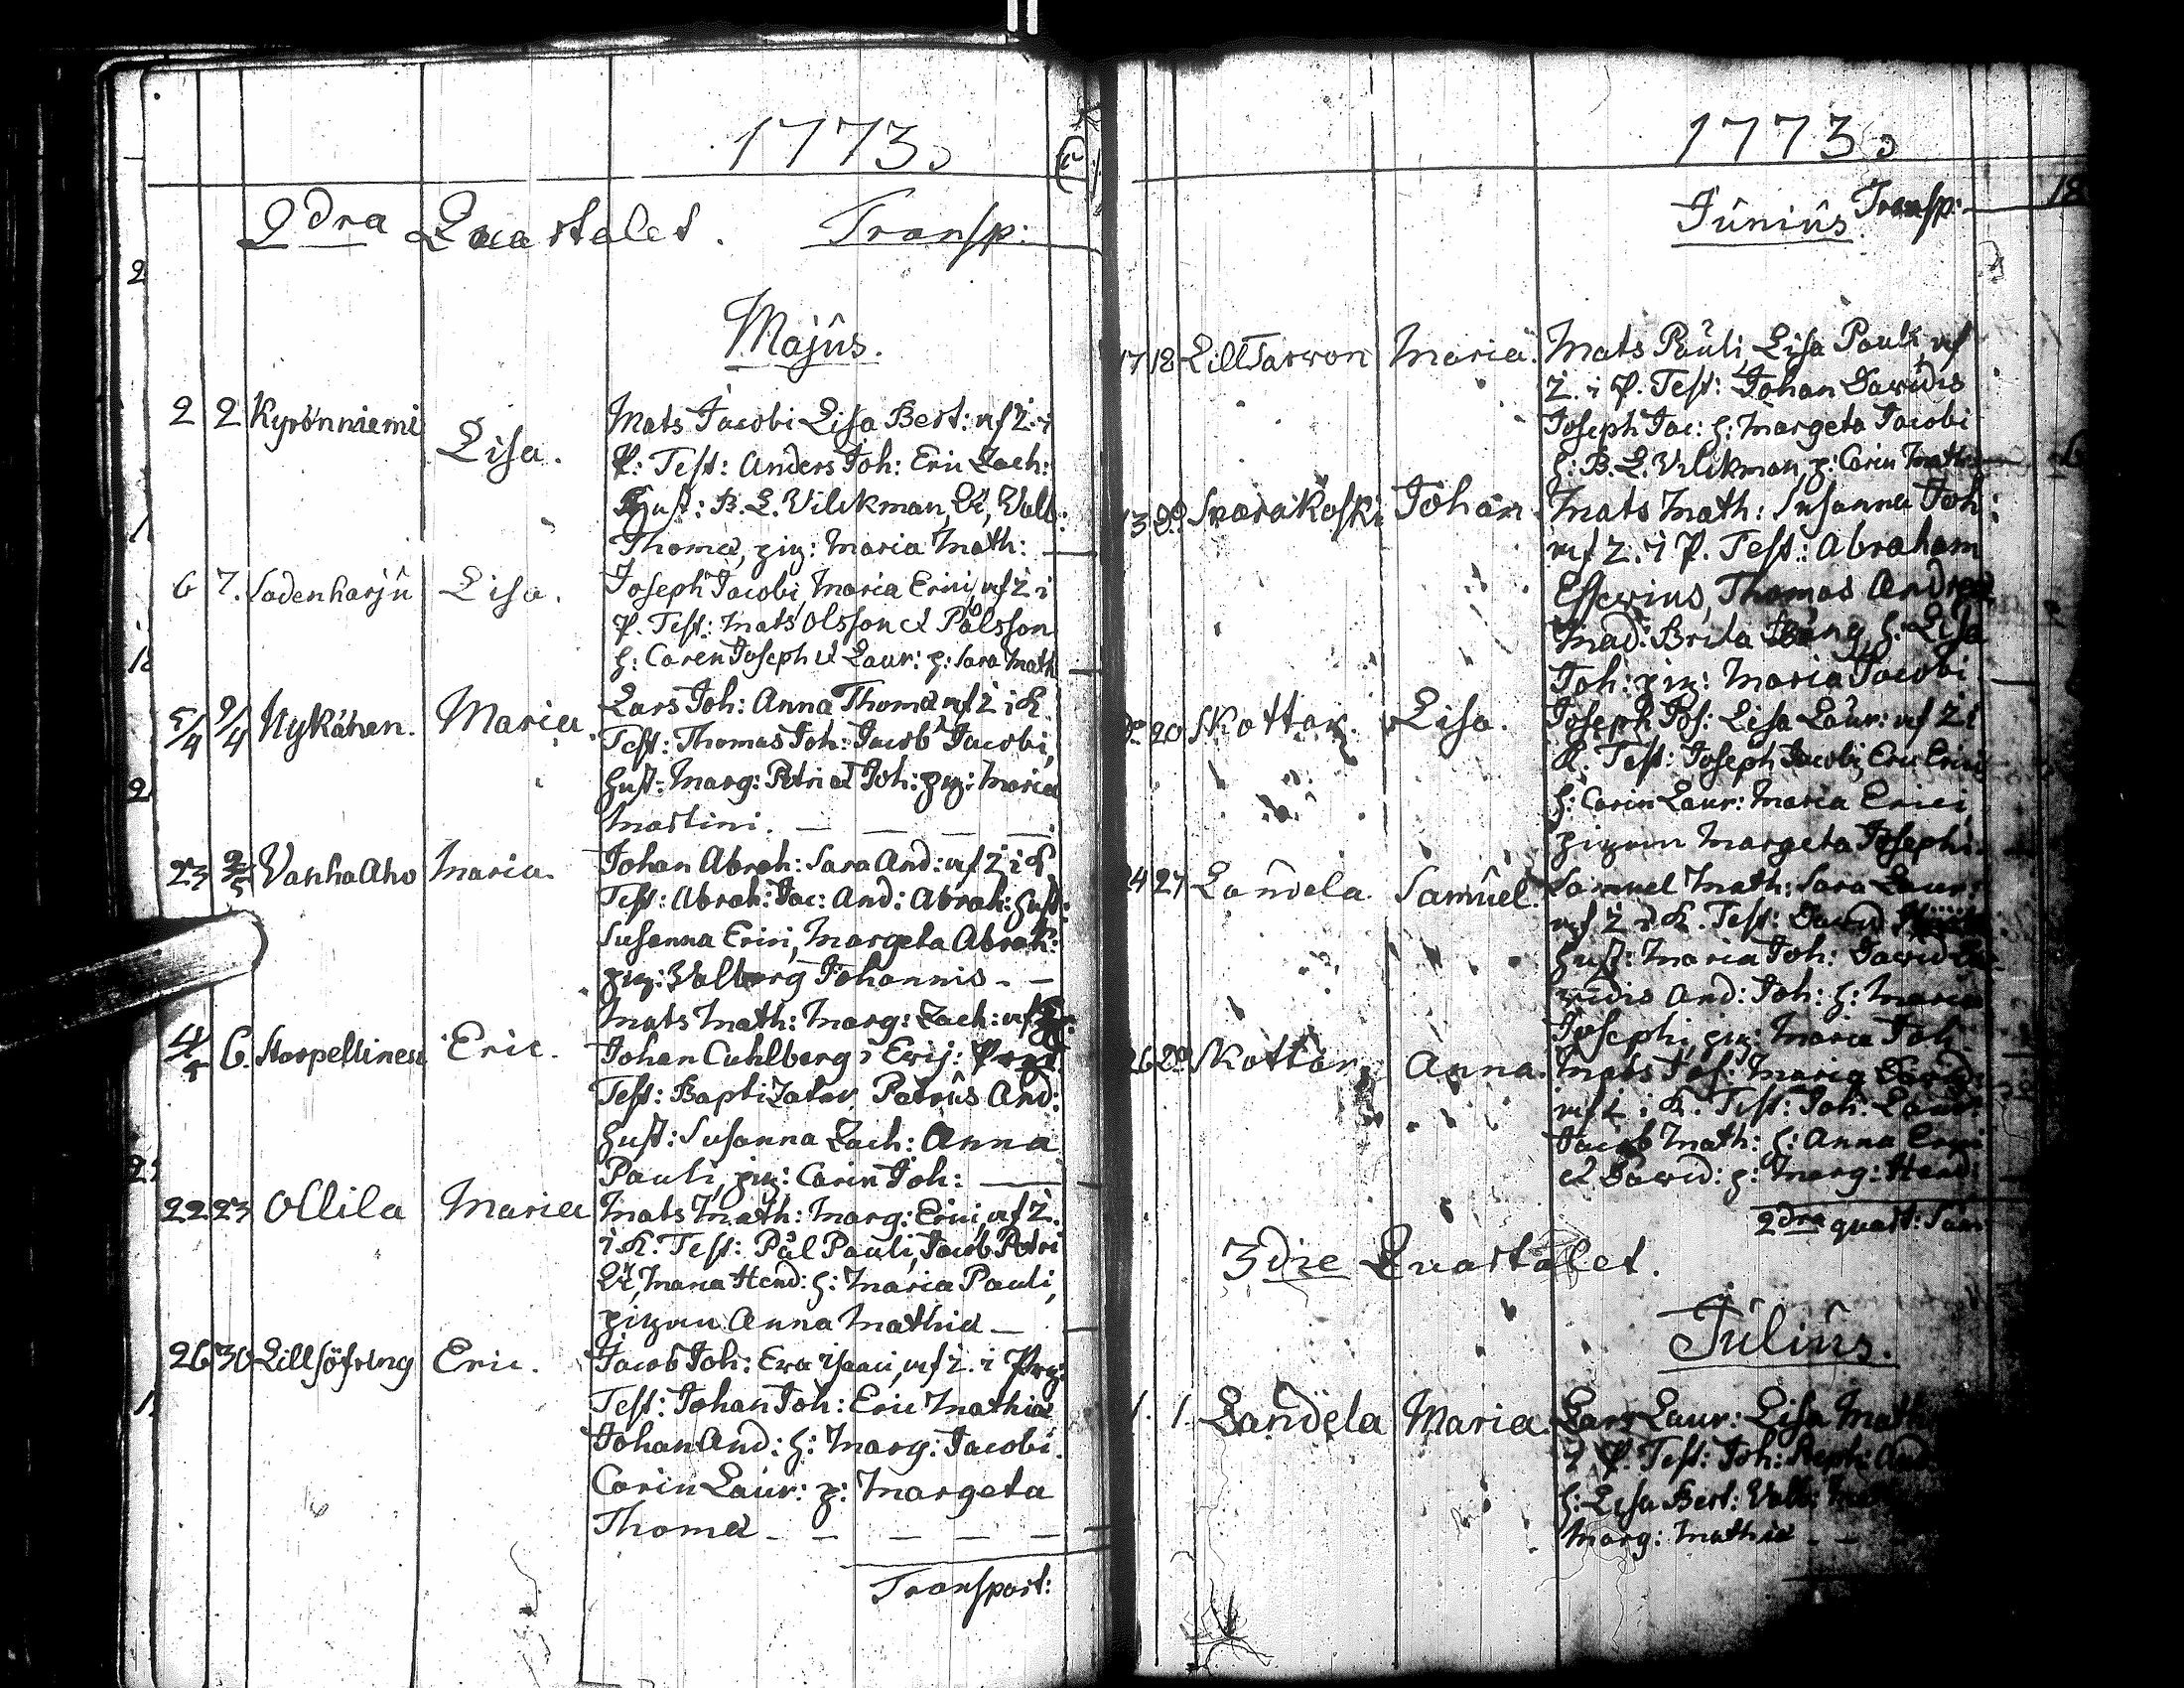 1773.
2dra Quartalet. Transp:
Majus.
2 2 Kyrönniemi Lisa. Mats Jacobi Lisa Bert: uf Z. i
P: Test: Anders Joh: Eric Zach:
Hust: B. L. Vilckman, Et, Valb:
Thomæ, pig: Maria Math:
6 7. Ladenharju Lisa. Joseph Jacobi, Maria Erici, uf Z i
P. Test: Mats Olsson et Pålsson
h: Caren Joseph et Laur: p: Sara Math
5/4 9/4 Nykänen. Maria. Lars Joh: Anna Thomæ uf Z i K.
Test: Thomas Joh: Jacob Jacobi,
hust: Marg: Petri et Joh: pig: Maria
Martini.
23 Vanha Aho Maria. Johan Abrah: Sara And: uf Z i K
Test: Abrah: Jac: And: Abrah: hust:
Susanna Erici, Margeta Abrah:
pig: Valborg Johannis
Mats Math: Marg: Zach: uf
6. Eric. Johan Cahlberg i
Test: Baptizator, Petrus And:
hust: Susanna Zach: Anna
Pauli, pig: Carin Joh:
22 23 Ollila Maria Mats Math: Marg: Erici, uf Z.
i K. Test: Pål Pauli, Jacob Petri
Et, Maria Hend: h: Maria Pauli,
pigan Anna Mathiæ
26 30 Lillsöfring Eric. Jacob Joh: Eva Isaaci, uf Z. i
Test: Johan Joh: Eric Mathiæ
Johan And: h: Marg: Jacobi.
Carin Laur: p: Margeta
Thomæ
Transport:
1773.
Junius. Transp:
17 18 Lill Tarvon Maria. Mats Pauli, Lisa Pauli, uf
Z. i P. Test: Johan Davidis
Joseph Jac: h: Margeta Jacobi
h: B. L. Vilckman, p: Carin Math:
do Johan. Mats Math: Susanna Joh:
uf Z. i P. Test: Abraham
Thomas Andreæ
Mad: Brita h: Lisa
Joh: pig: Maria Jacobi
do 20 Skottar. Lisa. Joseph Jos: Lisa Laur: uf Z i
K. Test: Joseph Jacobi, Eric Erici
h: Carin Laur: Maria Erici,
pigan Margeta Josephi
24 27 Landela. Samuel. Samuel Math: Sara Laur:
uf Z i K. Test: David
hust: Maria Joh: David
And: Joh: h: Maria
Josephi, pig: Maria Joh.
26 do Skottar. Anna. Mats Jos: Maria
uf Z i K. Test: Joh: Laur:
Jacob Math: h: Anna Erici
et David: p: Marg: Hend:
2dra quart: Sum
3die Quartalet.
Julius.
1. 1. Landela Maria. Lars Laur: Lisa Math
i P. Test: Joh: Steph: And
h: Lisa Bert: Valb:
Marg: Mathiæ